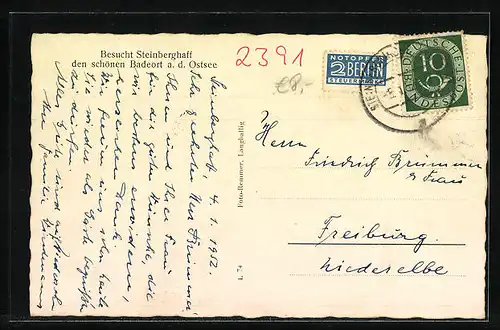 Besucht Steinberghaff
den schönen Badeort a. d. Ostsee
2391
€8,-
NOTOPFER
2 BERLIN
STEUERMARKE
DEUTSCHE BUNDESPOST
10
Steinberghaff, 4.1.1952.
Sehr geehrter Herr Brümmer,
Ihnen und Ihrer Frau
für die guten Wünsche, die
wir bestens erwidern,
herzlichen Dank.
Wir freuen uns sehr, heute
Sie wieder als Gäste begrüßen
zu dürfen.
Alles Gute und
Ihre Familie
Foto-Remmer, Langballig
L 74
Herrn
Friedrich Brümmer
u. Frau
Freiburg.
Niederelbe